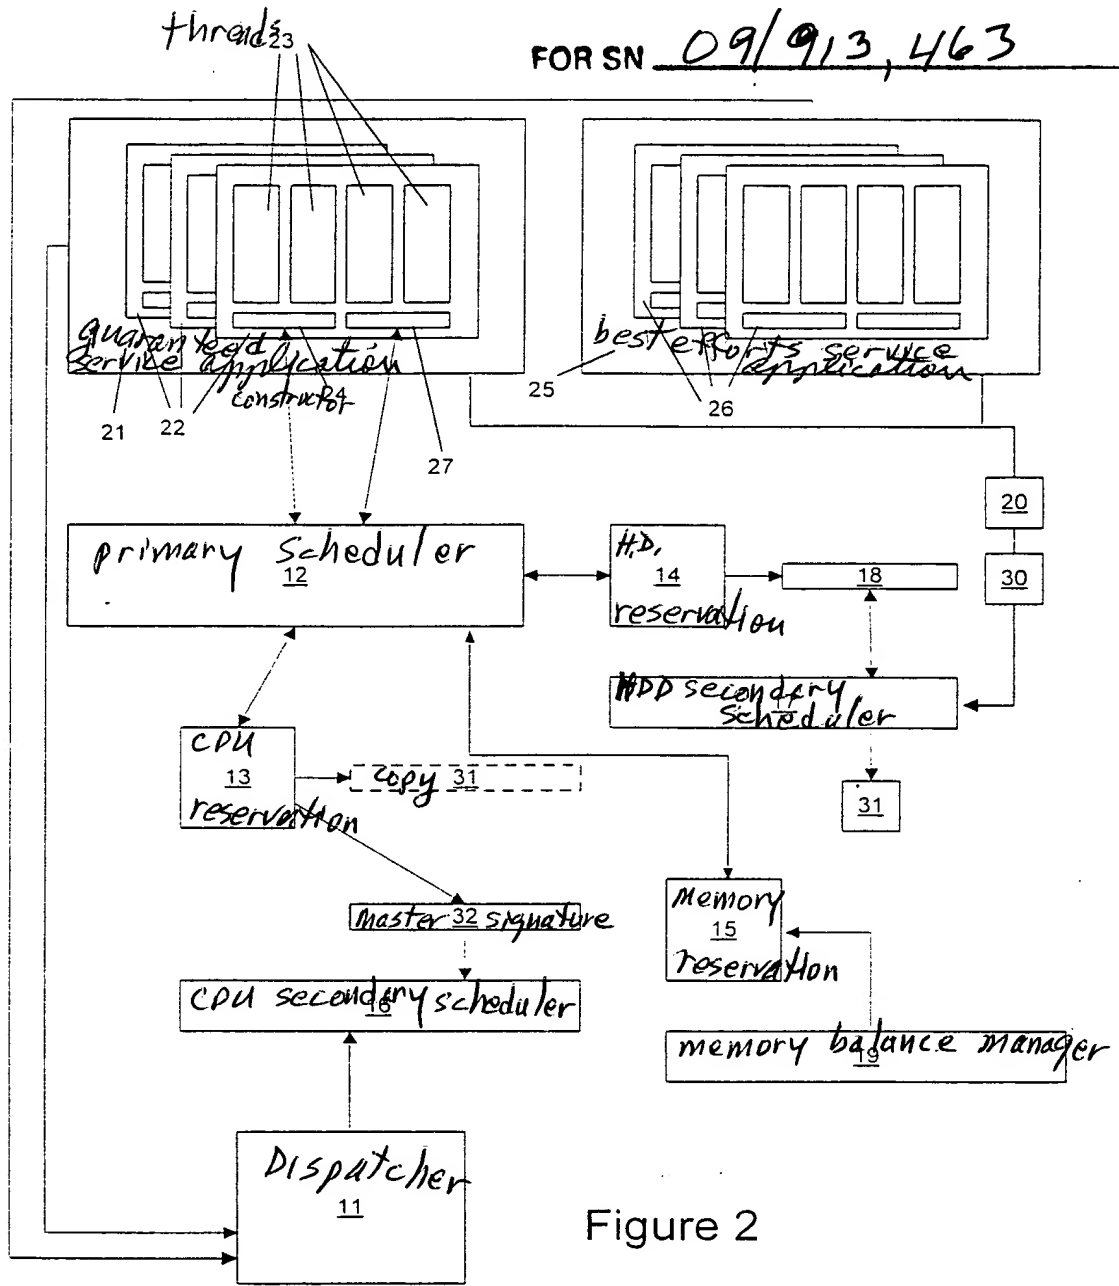 threads
23
FOR SN 09/913,463
guaranteed
service application
constructor
24
21
22
27
best efforts service
application
25
26
20
30
primary scheduler
12
H.D.
14
reservation
18
HDD secondary
17
scheduler
31
CPU
13
reservation
copy 31
master 32 signature
CPU secondary scheduler
16
Memory
15
reservation
memory balance manager
19
Dispatcher
11
Figure 2